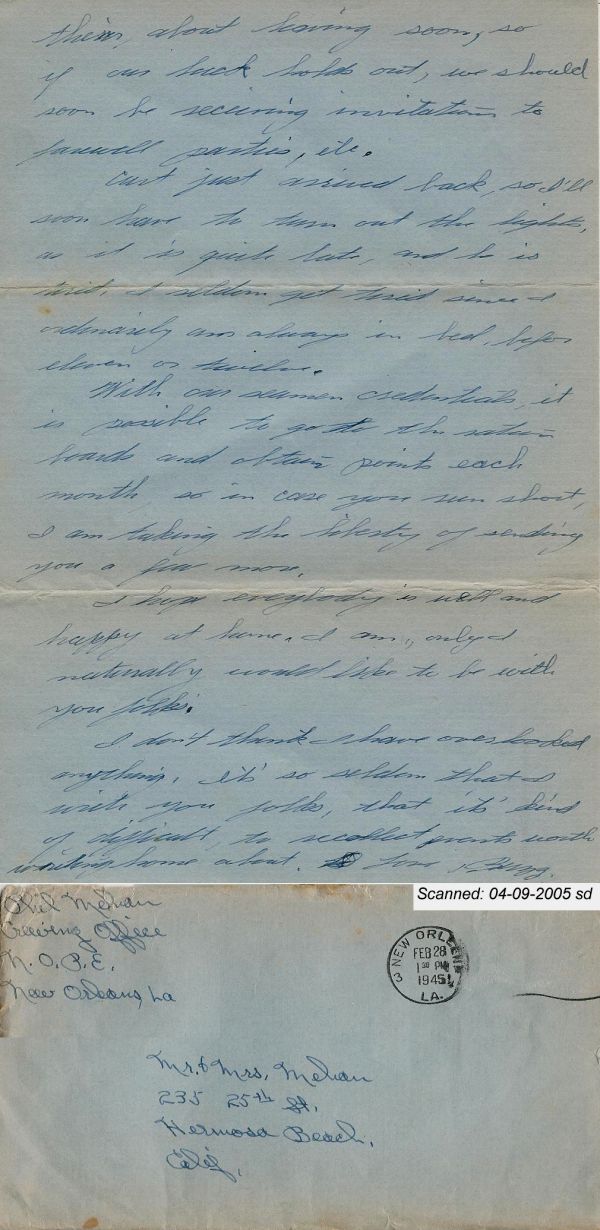 them, about leaving soon, so
if our luck holds out, we should
soon be receiving invitations to
farewell parties, etc.
Curt just arrived back, so I'll
soon have to turn out the lights,
as it is quite late, and he is
tired. I seldom get tired since I
ordinarily am always in bed, before
eleven or twelve.
With our seamen credentials, it
is possible to go to the ration
boards and obtain points each
month, so in case you run short,
I am taking the liberty of sending
you a few more.
I hope everybody is well and
happy at home. I am, only I
naturally would like to be with
you folks.
I don't think I have overlooked
anything. It's so seldom that I
write you folks, that it's kind
of difficult, to recollect events worth
writing home about. Love
Scanned: 04-09-2005 sd
Phil Mehan
Crewing Office
N. O. P. E.
New Orleans, La
NEW ORLEANS
3
FEB 28
1 30 PM
1945
LA.
Mr. & Mrs. Mehan
235 25th St.
Hermosa Beach,
Calif.